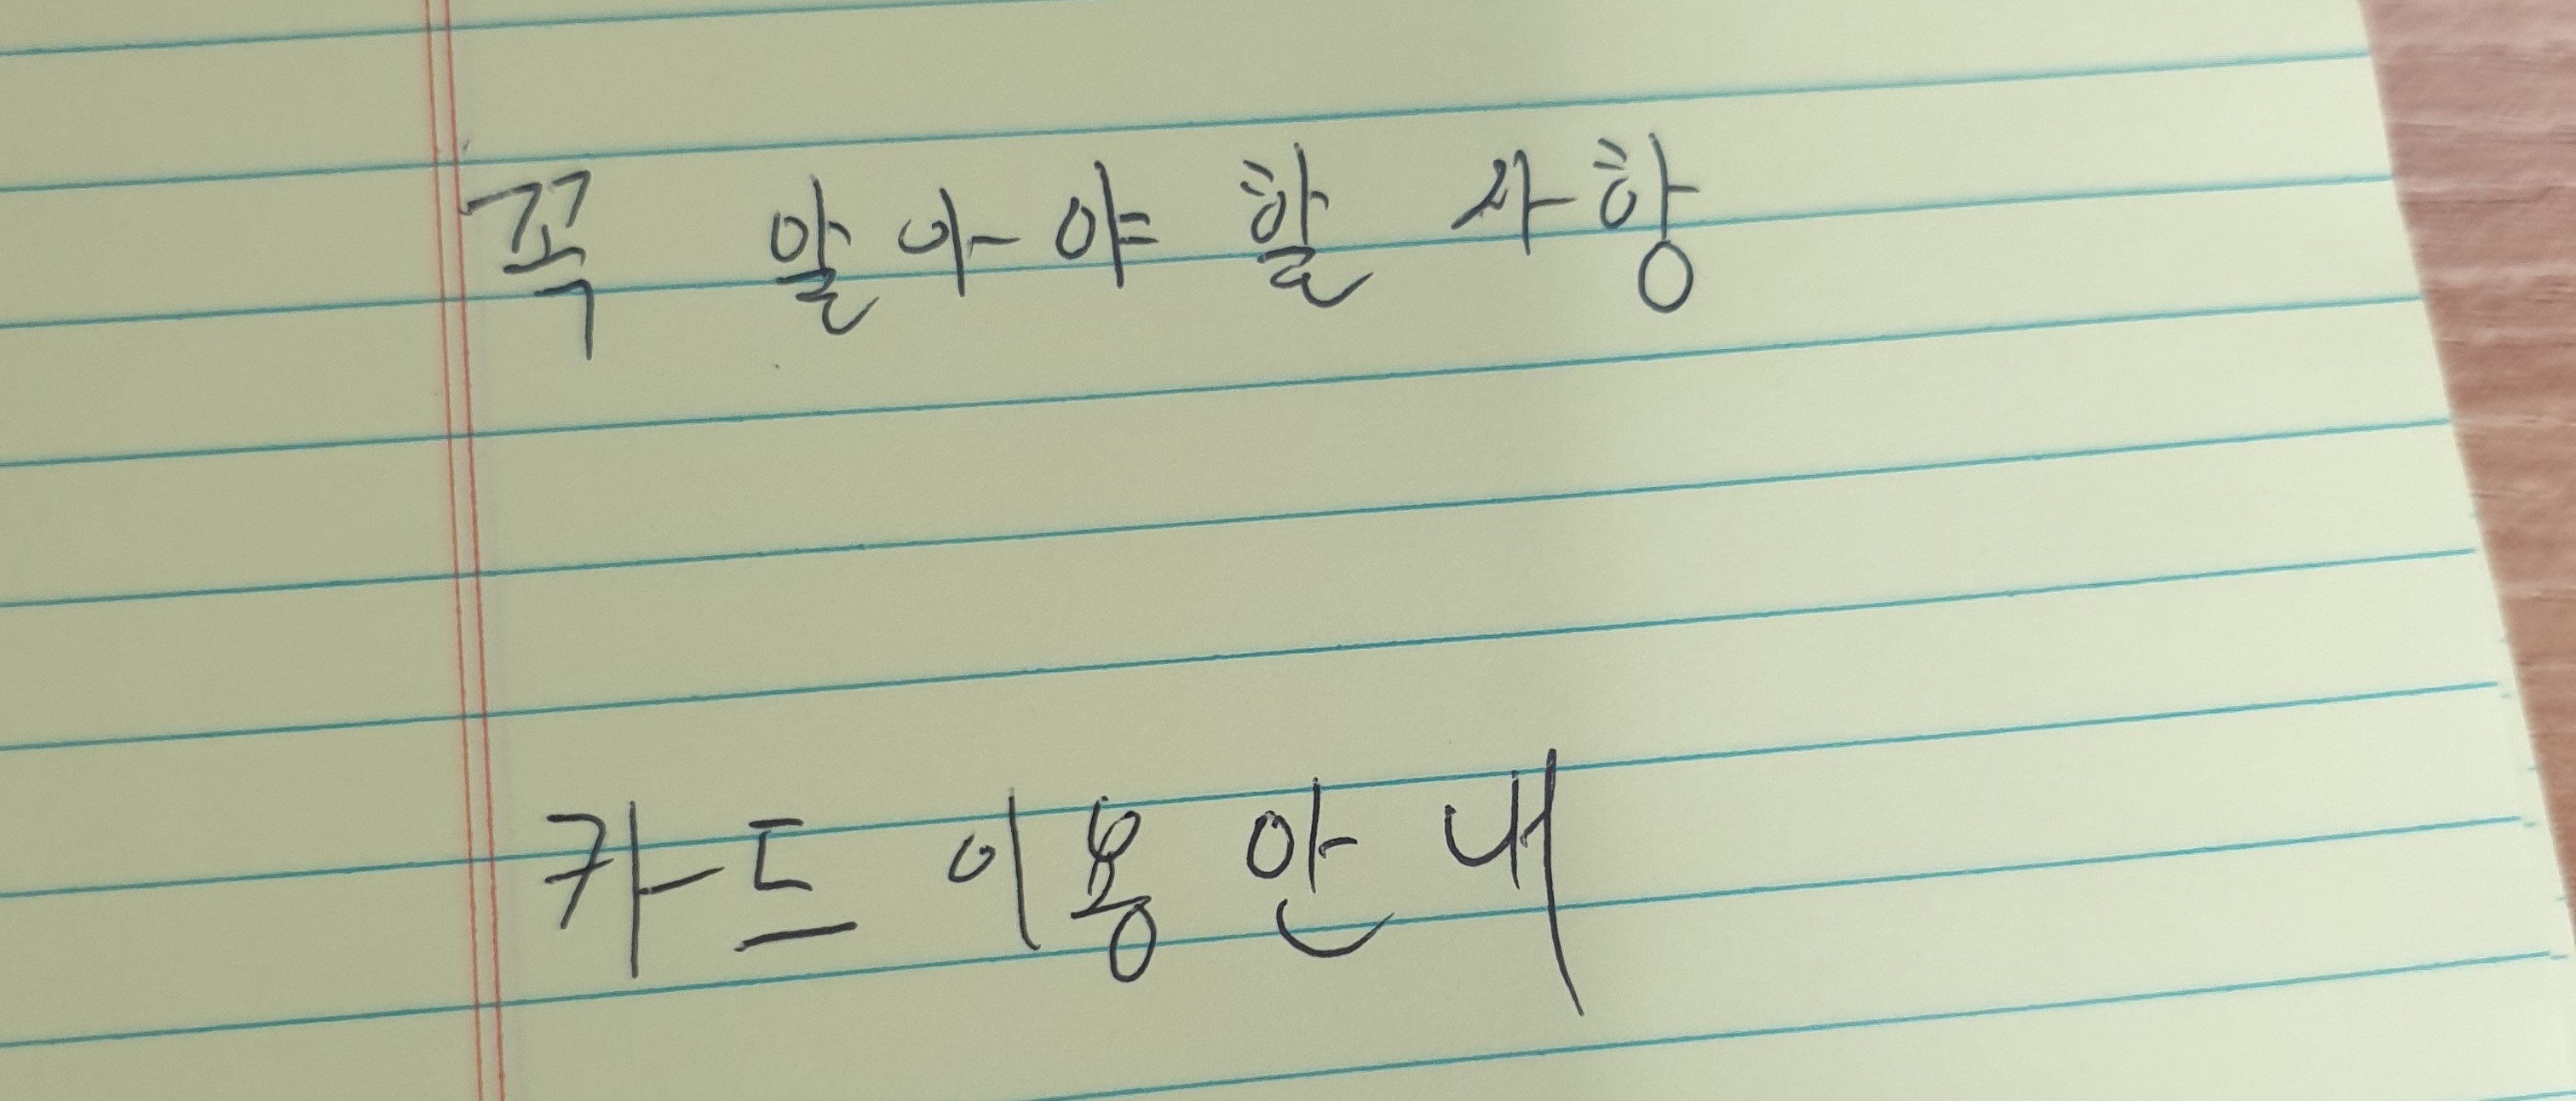 꼭 알아야 할 사항
카드 이용 안내